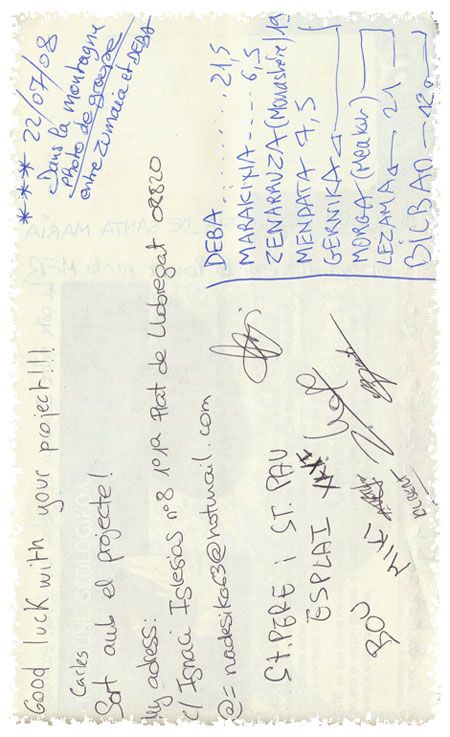 *** 22/07/08
Dans la montagne
photo de groupe
entre Zumaia et DEBA
DEBA.......... 21,5
MARAKIÑA----- 6,5
ZENARRUZA (Monastère/19
MENDATA 7,5
GERNIKA
MORGA (Meakur)
LEZAMA 21
BILBAO 12
Good luck with your project!!!!
Carles
Sort amb el projecte!
My adess:
C/ Ignaci Iglesias nº8 1º1ª Prat de Llobregat 08820
@= nadesika63@hotmail.com
ST. PERE i ST. PAU
ESPLAI
BOU
MIKI